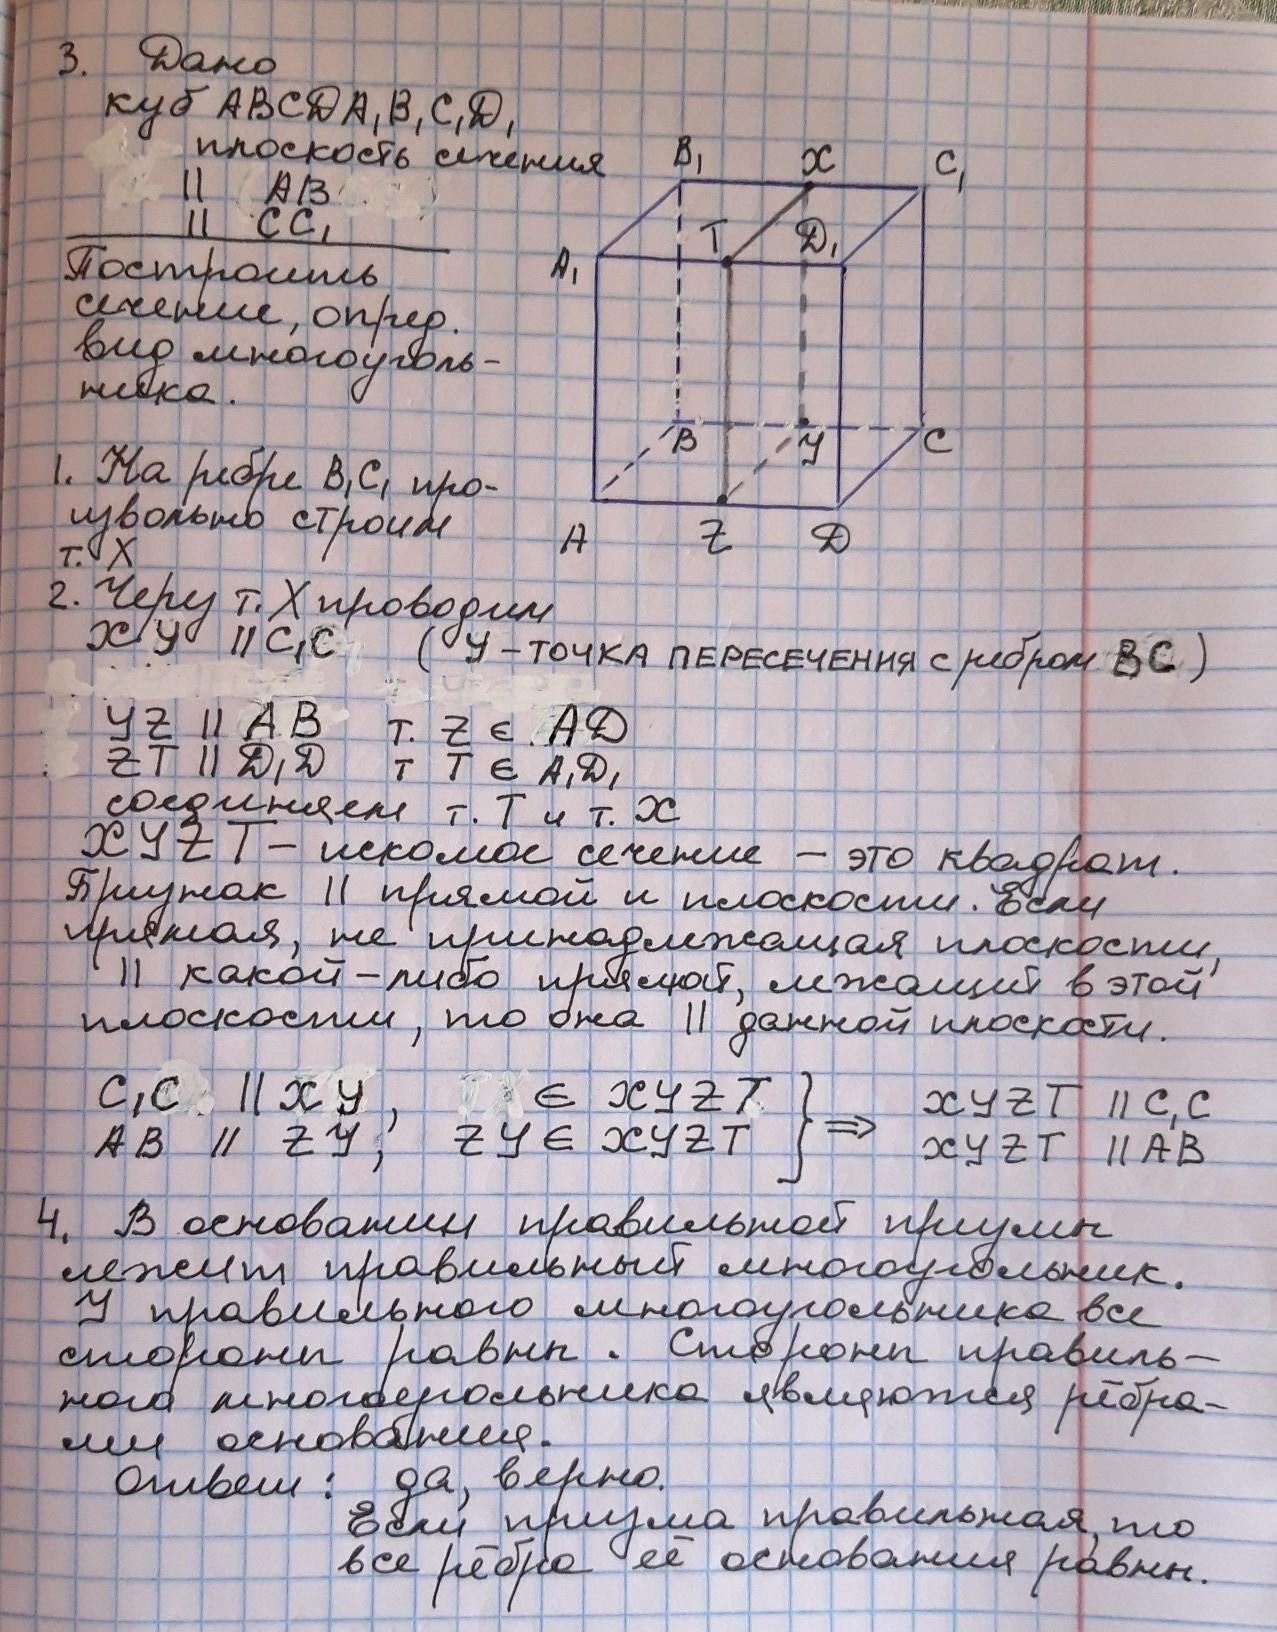 3. Дано
куб ABCDA₁B₁C₁D₁
плоскость сечения
|| AB
|| CC₁
Построить
сечение, опред.
вид многоуголь-
ника.
B₁ X C₁
A₁ T D₁
B У C
A Z D
1. На ребре B₁C₁ про-
извольно строим
т. X
2. Через т. X проводим
XУ || C₁C (У - ТОЧКА ПЕРЕСЕЧЕНИЯ с ребром BC)
УZ || AB т. Z ∈ AD
ZT || D₁D т T ∈ A₁D₁
соединяем т. T и т. X
XУZT - искомое сечение - это квадрат.
Признак || прямой и плоскости. Если
прямая, не принадлежащая плоскости,
|| какой-либо прямой, лежащий в этой
плоскости, то она || данной плоскости.
C₁C || XУ, ∈ XУZT } ⇒ XУZT || C₁C
AB || ZУ, ZУ ∈ XУZT XУZT || AB
4. В основании правильной призмы
лежит правильный многоугольник.
У правильного многоугольника все
стороны равны. Стороны правиль-
ного многоугольника являются рёбра-
ми основания.
Ответ: да, верно.
Если призма правильная, то
все рёбра её основания равны.